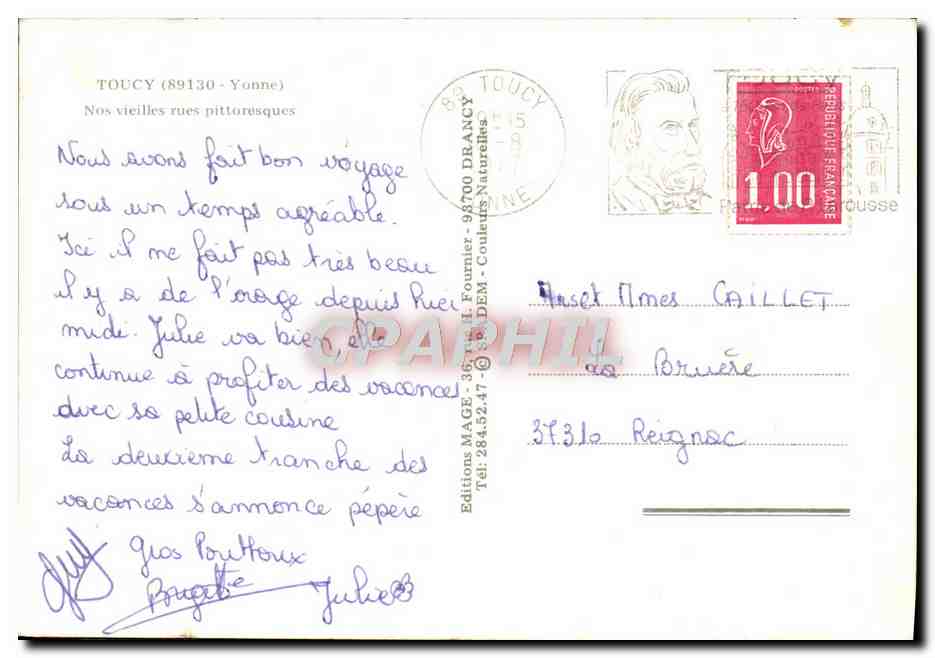 TOUCY (89130 - Yonne)
Nos vieilles rues pittoresques
Nous avons fait bon voyage
sous un temps agréable.
Ici il ne fait pas très beau
il y a de l'orage depuis hier
midi. Julie va bien, elle
continue à profiter des vacances
avec sa petite cousine
La deuxième tranche des
vacances s'annonce pépère
Gros Poutoux
Guy
Brigitte
Julie
Editions MAGE - 36, rue H. Fournier - 93700 DRANCY
Tél: 284.52.47 - © SPADEM - Couleurs Naturelles
89 TOUCY
YONNE
TOUCY
POSTES
RÉPUBLIQUE FRANÇAISE
1,00
CPAPHIL
Mmes CAILLET
La Bruère
37310 Reignac